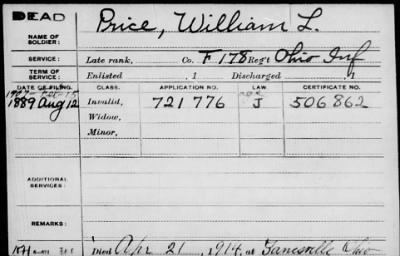 DEAD
NAME OF SOLDIER: Price, William L.
SERVICE: Late rank, Co. F 178 Regt Ohio Inf
TERM OF SERVICE: Enlisted , 1 Discharged , 1
DATE OF FILING. CLASS. APPLICATION NO. LAW. CERTIFICATE NO.
1889 Aug 12 Invalid, 721 776 J 506 862
Widow,
Minor,
ADDITIONAL SERVICES:
REMARKS:
Died Apr 21, 1914, at Zanesville Ohio